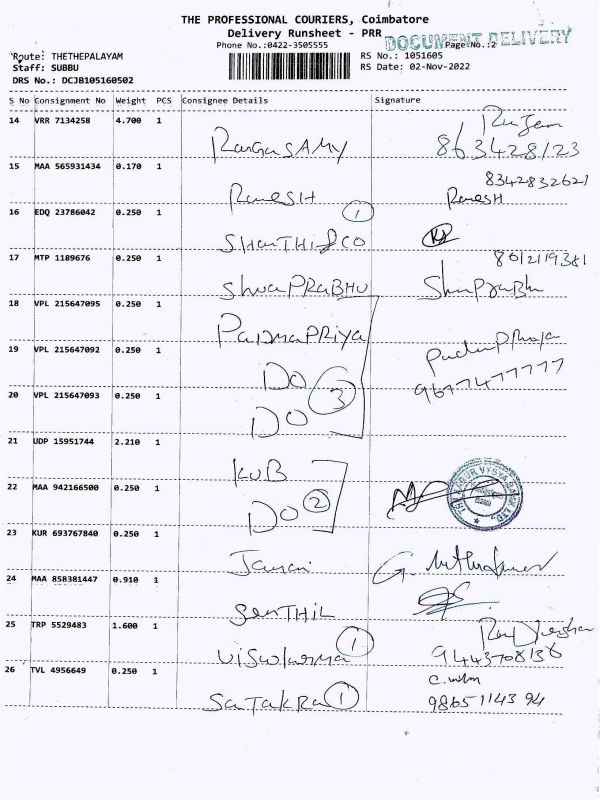 THE PROFESSIONAL COURIERS, Coimbatore
Delivery Runsheet - PRR
DOCUMENT DELIVERY
Phone No.:0422-3505555
Page No.:2
Route: THETHEPALAYAM
RS No.: 1051605
Staff: SUBBU
RS Date: 02-Nov-2022
DRS No.: DCJB105160502
S No Consignment No Weight PCS Consignee Details Signature
14 VRR 7134258 4.700 1
RangaSAMY 863428123
15 MAA 565931434 0.170 1
8342832621
RameSH RameSH
16 EDQ 23786042 0.250 1
1
SHanTHI & CO
17 MTP 1189676 0.250 1
8012119381
ShivaPRaBHU
18 VPL 215647095 0.250 1
PaDmaPRiya
19 VPL 215647092 0.250 1
DO
3
9677477777
20 VPL 215647093 0.250 1
DO
21 UDP 15951744 2.210 1
KUB
22 MAA 942166500 0.250 1
DO 2
23 KUR 693767840 0.250 1
Janani
24 MAA 858381447 0.910 1
SenTHIL
25 TRP 5529483 1.600 1
1
Viswkarma 9443708138
26 TVL 4956649 0.250 1
SaTakRa 1 9865114394